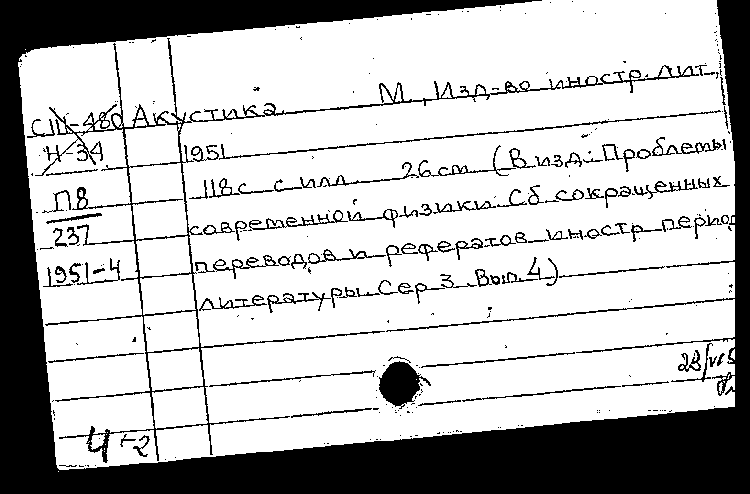 СШ-480 Акустика. М., Изд-во иностр. лит.,
Н-34 1951
П8 118с. с илл. 26см. (В изд.: Проблемы
237 современной физики. Сб. сокращенных
1951-4 переводов и рефератов иностр. период.
литературы. Сер. 3. Вып. 4)
4-2